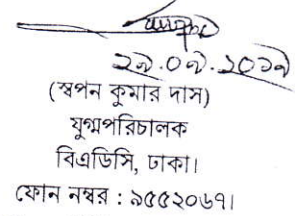 ২৯.০৭.২০১৯
(স্বপন কুমার দাস)
যুগ্মপরিচালক
বিএডিসি, ঢাকা।
ফোন নম্বর : ৯৫৫২০৬৭।